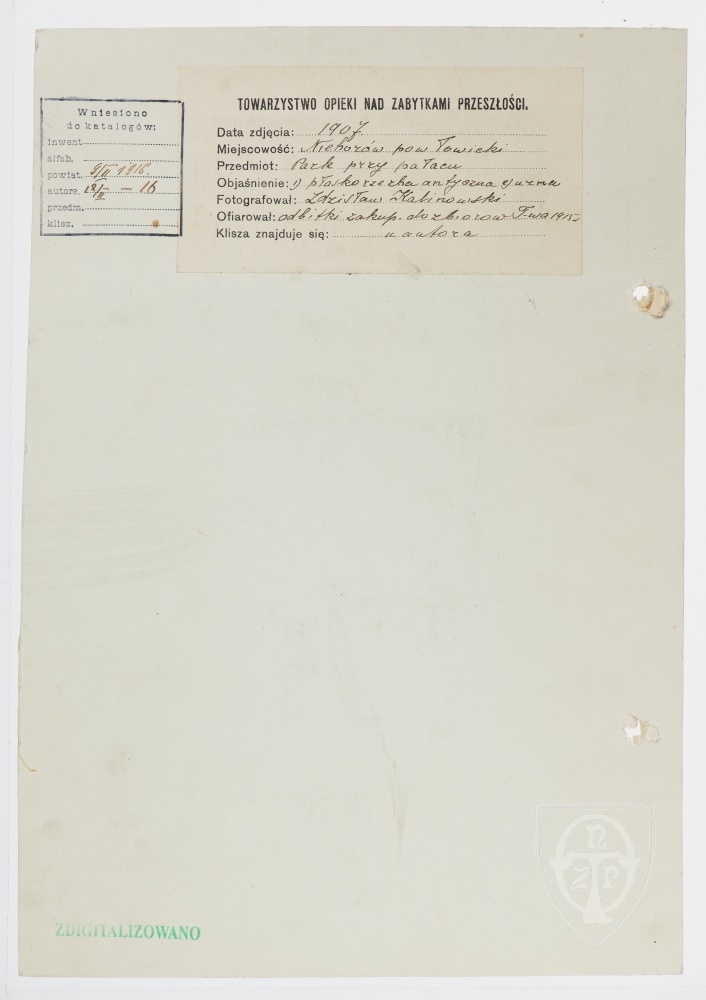 Wniesiono
do katalogów:
inwent.
alfab.
powiat. 9/II 1916.
autorz. 12/II – 16
przedm.
klisz.
TOWARZYSTWO OPIEKI NAD ZABYTKAMI PRZESZŁOŚCI.
Data zdjęcia: 1907.
Miejscowość: Nieborów pow Łowicki
Przedmiot: Park przy pałacu
Objaśnienie: 1) płaskorzeźba antyczna 2) urna
Fotografował: Zdzisław Kalinowski
Ofiarował: odbitki zakup. do zbiorów T-wa 1915
Klisza znajduje się: u autora
ZDIGITALIZOWANO
TNZP